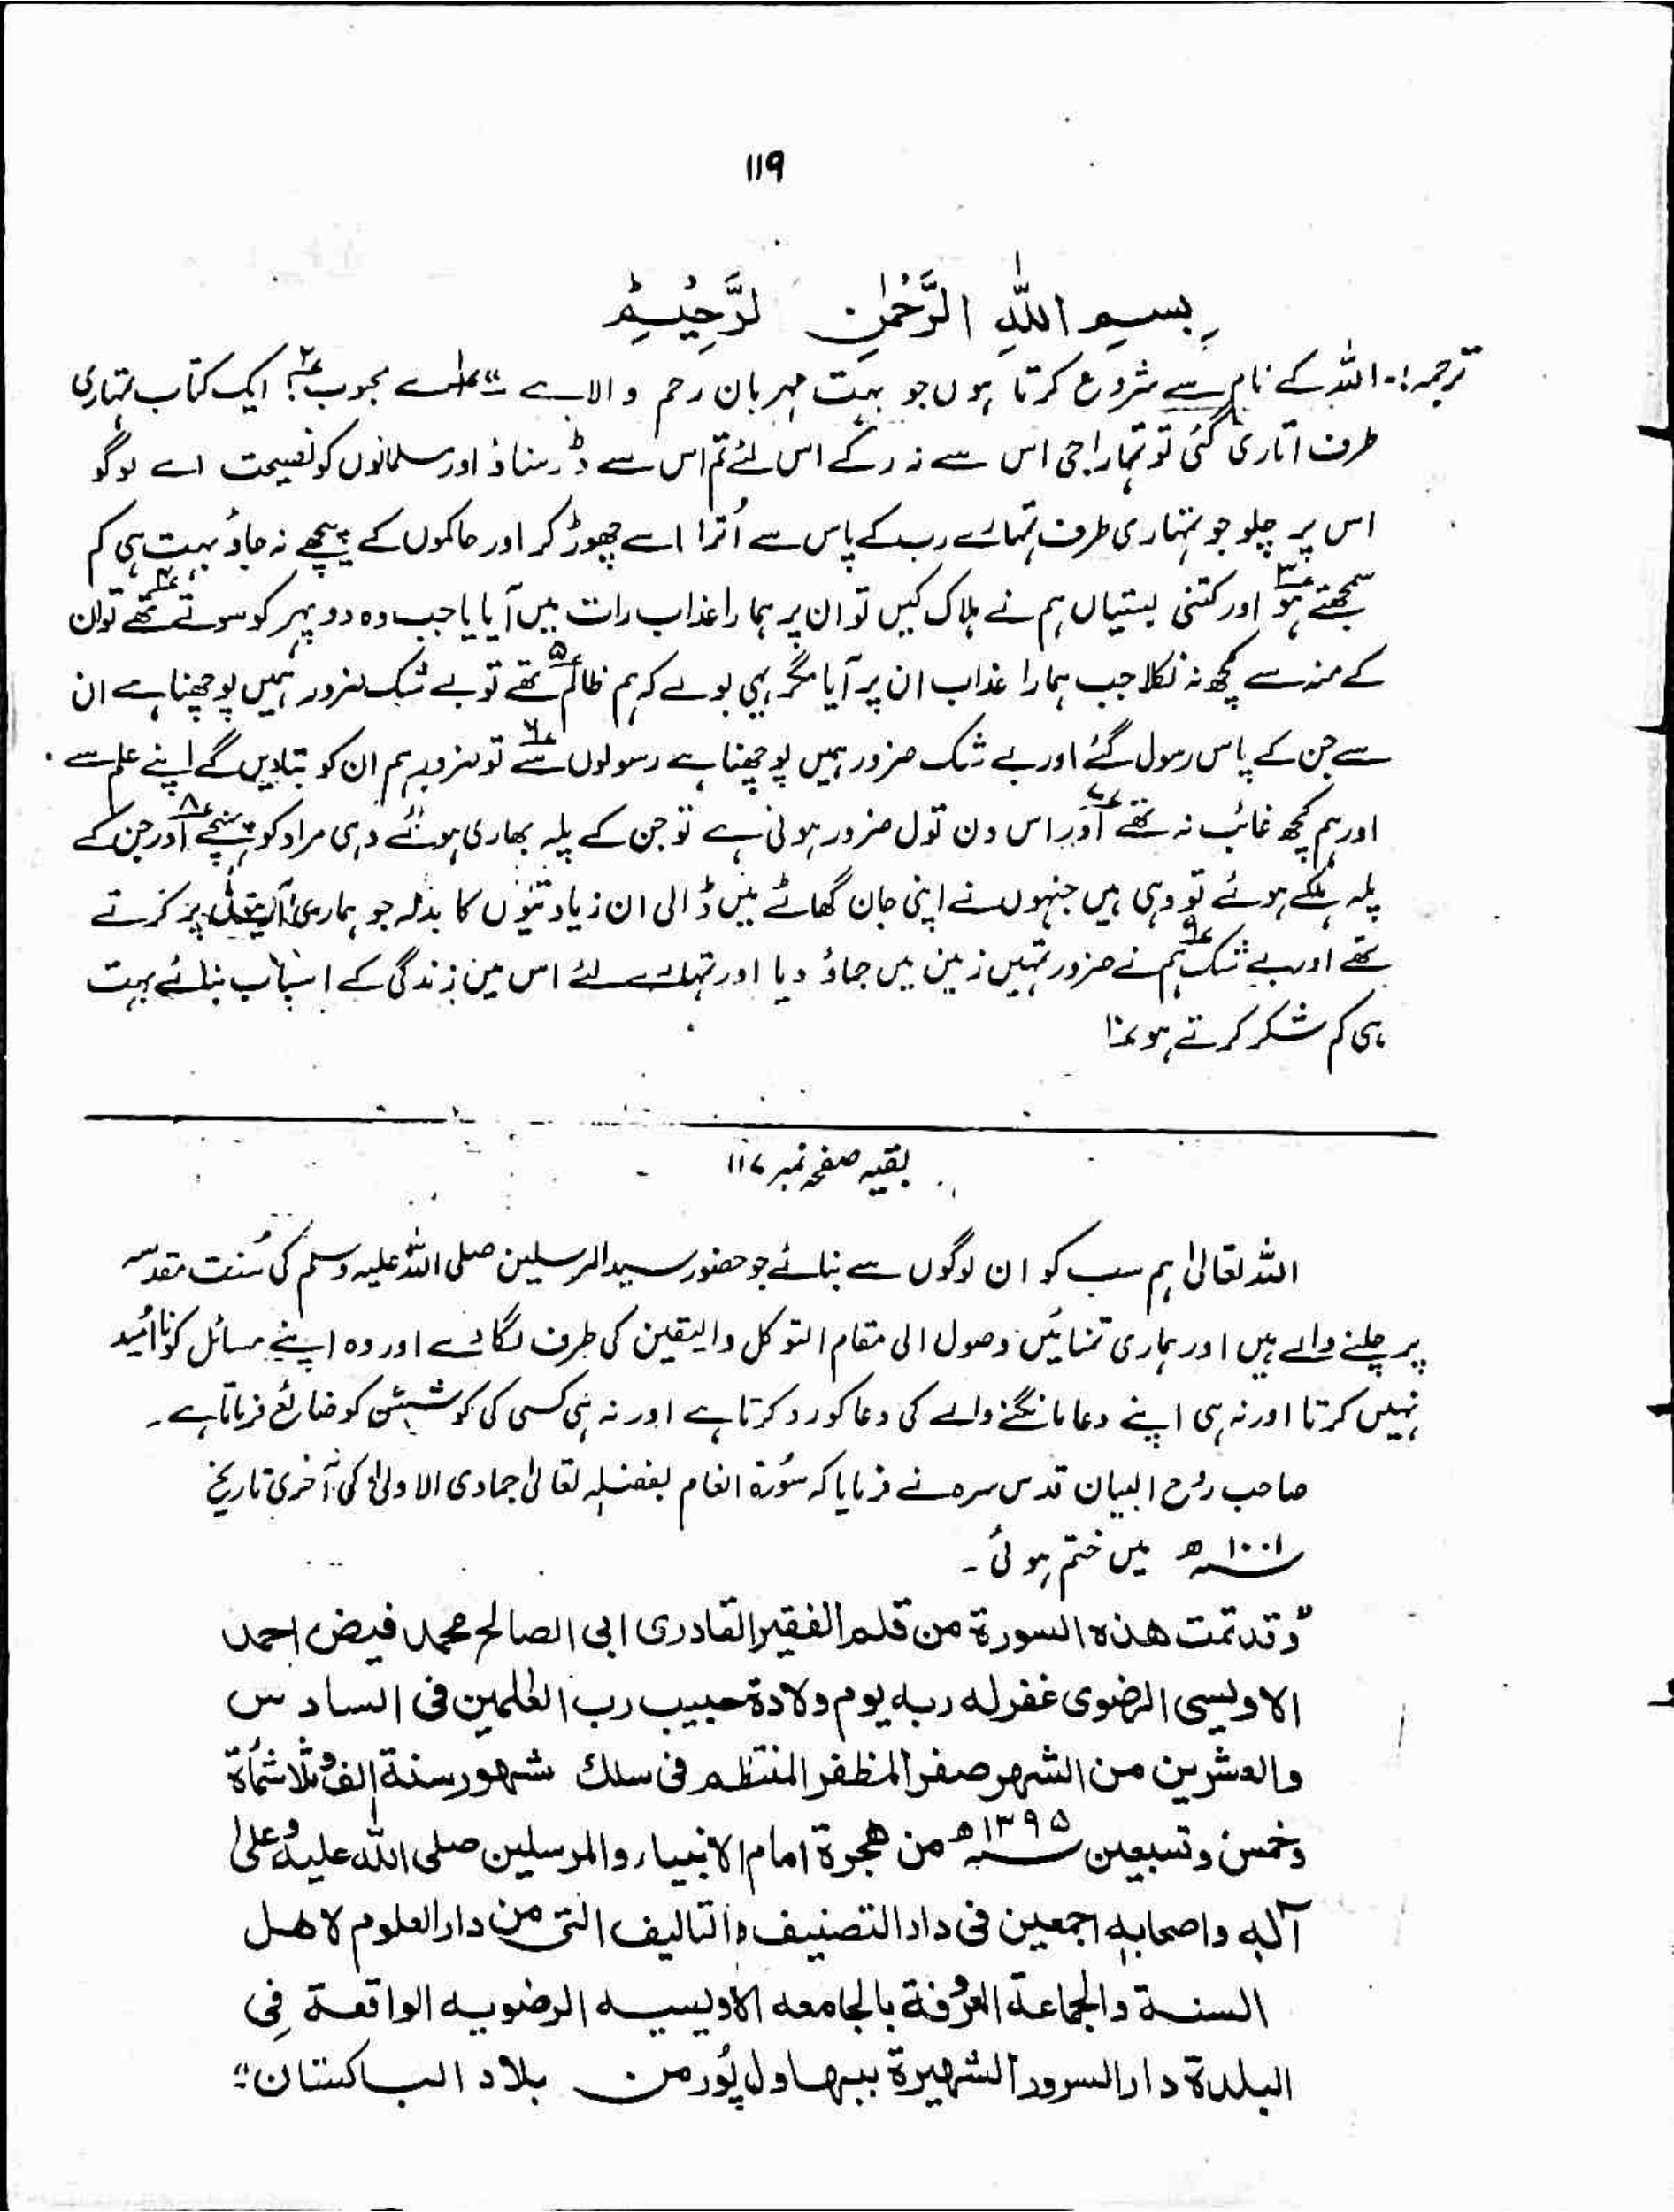 ۱۱۹
بِسمِ اللّٰہِ الرَّحْمٰنِ لرَّحِیْمِ
ترجمہ:۔ اللہ کے نام سے شروع کرتا ہوں جو بہت مہربان رحم والا ہے ؎۱ اے محبوب ؎۲ ایک کتاب تمہاری
طرف اتاری گئی تو تمہارا جی اس سے نہ رکے اس لئے تم اس سے ڈر سناؤ اور مسلمانوں کو نصیحت اے لوگو
اس پر چلو جو تمہاری طرف تمہارے رب کے پاس سے اُترا اسے چھوڑ کر اور حاکموں کے پیچھے نہ جاؤ بہت ہی کم
سمجھتے ہو ؎۳ اور کتنی بستیاں ہم نے ہلاک کیں تو ان پر ہمارا عذاب رات میں آیا یا جب وہ دوپہر کو سوتے تھے ؎۴ تو ان
کے منہ سے کچھ نہ نکلا جب ہمارا عذاب ان پر آیا مگر یہی بولے کہ ہم ظالم تھے ؎۵ تو بے شک ضرور ہمیں پوچھنا ہے ان
سے جن کے پاس رسول گئے اور بے شک ضرور ہمیں پوچھنا ہے رسولوں سے ؎۶ تو ضرور ہم ان کو بتادیں گے اپنے علم سے
اور ہم کچھ غائب نہ تھے ؎۷ اور اس دن تول ضرور ہونی ہے تو جن کے پلہ بھاری ہوئے وہی مراد کو پہنچے ؎۸ اور جن کے
پلہ ہلکے ہوئے تو وہی ہیں جنہوں نے اپنی جان گھاٹے میں ڈالی ان زیادتیوں کا بدلہ جو ہماری آیتوں پر کرتے
تھے اور بے شک ؎۹ ہم نے ضرور تمہیں زمین میں جماؤ دیا اور تمہارے لئے اس میں زندگی کے اسباب بنائے بہت
ہی کم شکر کرتے ہو ؎۱۰
بقیہ صفحہ نمبر ۱۱۷
اللہ تعالیٰ ہم سب کو ان لوگوں سے بنائے جو حضور سید المرسلین صلی اللہ علیہ وسلم کی سُنت مقدسہ
پر چلنے والے ہیں اور ہماری تمنائیں وصول الی مقام التوکل والیقین کی طرف لگائے اور وہ اپنے مسائل کو نا اُمید
نہیں کرتا اور نہ ہی اپنے دعا مانگنے والے کی دعا کو رد کرتا ہے اور نہ ہی کسی کی کوشش کو ضائع فرماتا ہے۔
صاحب روح البیان قدس سرہ نے فرمایا کہ سُورۃ انعام بفضلہ تعالیٰ جمادی الاولیٰ کی آخری تاریخ
۱۰۰۱ھ میں ختم ہوئی۔
"وقد تمت هذه السورة من قلم الفقير القادری ابی الصالح محمد فیض احمد
الاویسی الرضوی غفرلہ ربہ یوم ولادة حبیب رب العٰلمین فی السادس
والعشرین من الشہر صفر المظفر المنتظم فی سلك شہور سنة الف وثلاثمأة
وخمس وتسعین ۱۳۹۵ھ من هجرة امام الانبیاء والمرسلین صلی اللہ علیہ وعلیٰ
آلہ واصحابہ اجمعین فی دار التصنیف والتالیف التی من دار العلوم لاهل
السنة والجماعة المعروفة بالجامعہ الاویسیہ الرضویہ الواقعة فِی
البلدة دار السرور الشہیرة ببہاول پُور من بلاد الباکستان"